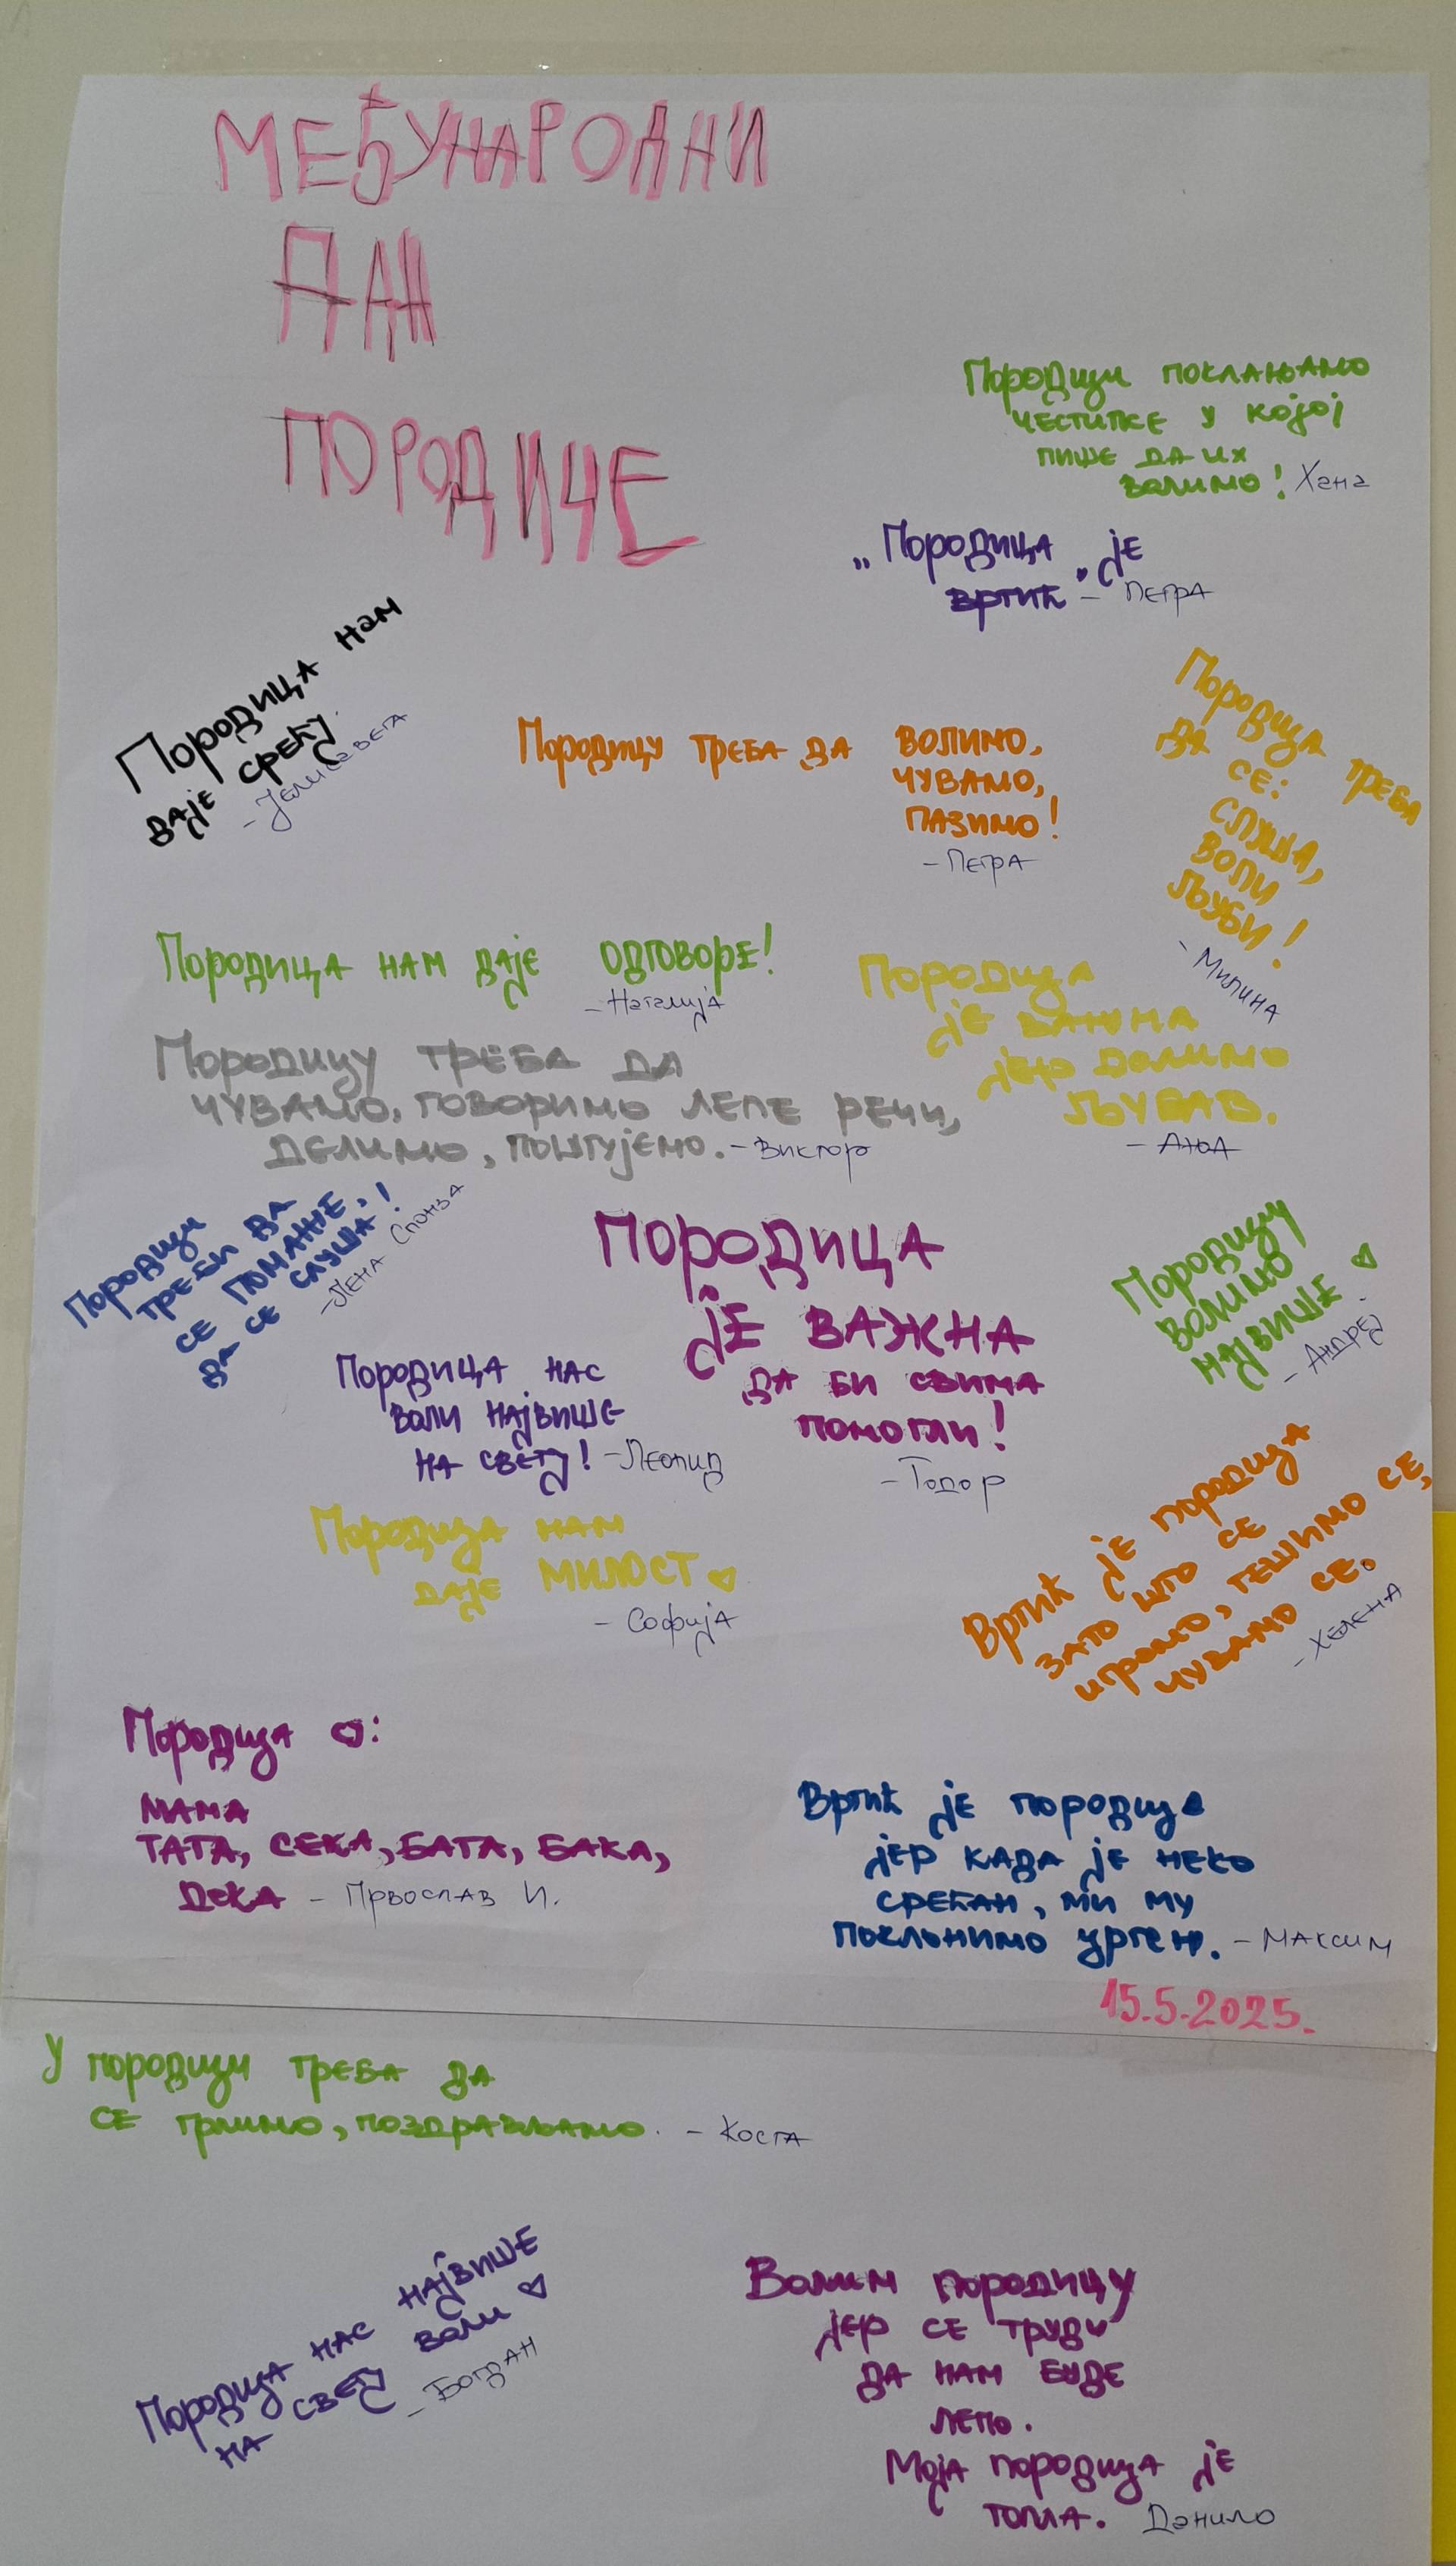 МЕЂУНАРОДНИ
ДАН
ПОРОДИЦЕ
Породици поклањамо
честитке у којој
пише да их
волимо! Хана
„Породица је
вртић." - Петра
Породица нам
даје срећу.
- Јелисавета
Породицу треба да волимо,
чувамо,
пазимо!
- Петра
Породица треба
да се:
слуша,
воли
љуби!
- Милина
Породица нам даје одговоре!
- Наталија
Породица
је важна
јер делимо
љубав.
- Ања
Породицу треба да
чувамо, говоримо лепе речи,
делимо, поштујемо. - Виктор
Породици
треби да
се помогне,
да се слуша!
- Лена Споња
Породица
је важна
да би свима
помогли!
- Тодор
Породицу
волимо
највише ♡
- Андреј
Породица нас
воли највише
на свету! - Леонид
Породица нам
даје милост ♡
- Софија
Вртић је породица
зато што се
играмо, тешимо се,
чувамо се.
- Хелена
Породица ♡:
мама
тата, сека, бата, бака,
дека - Првослав И.
Вртић је породица
јер када је неко
срећан, ми му
поклонимо цртеж. - Максим
15.5.2025.
У породици треба да
се грлимо, поздрављамо. - Коста
Породица нас највише
на свету воли ♡
- Богдан
Волим породицу
јер се труди
да нам буде
лепо.
Моја породица је
топла. Данило